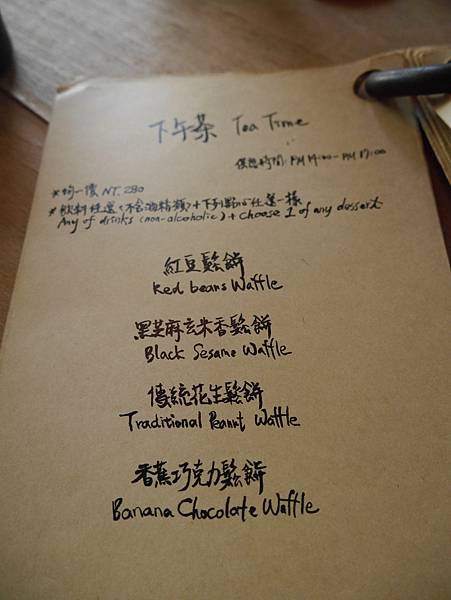 下午茶 Tea Time
優惠時間: PM 14:00 - PM 17:00
*均一價 NT. 280
*飲料任選(不含酒精類)+下列點心任選一樣
Any of drinks (non-alcoholic) + Choose 1 of any dessert
紅豆鬆餅
Red beans Waffle
黑芝麻玄米香鬆餅
Black Sesame Waffle
傳統花生鬆餅
Traditional Peanut Waffle
香蕉巧克力鬆餅
Banana Chocolate Waffle